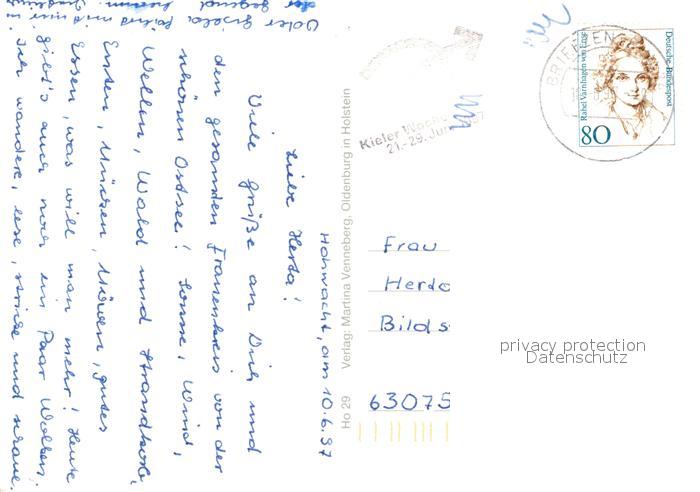 Hohwacht, am 10.6.97
Liebe Herta!
Viele Grüße an Dich und
den gesamten Frauenkreis von der
schönen Ostsee! Sonne, Wind,
Wellen, Wald und Strandkorb,
Enten, Mücken, Möwen, gutes
Essen, was will man mehr! Heute
gibt's auch noch ein Paar Wolken.
Hier wandere, lese, stricke und
der Gegend
Verlag: Martina Venneberg, Oldenburg in Holstein
Ho 29
Kieler Woche
21.-29. Juni
BRIEFZEN
Deutsche Bundespost
Rahel Varnhagen von Ense
80
Frau
Herta
Bilds
63075
privacy protection
Datenschutz